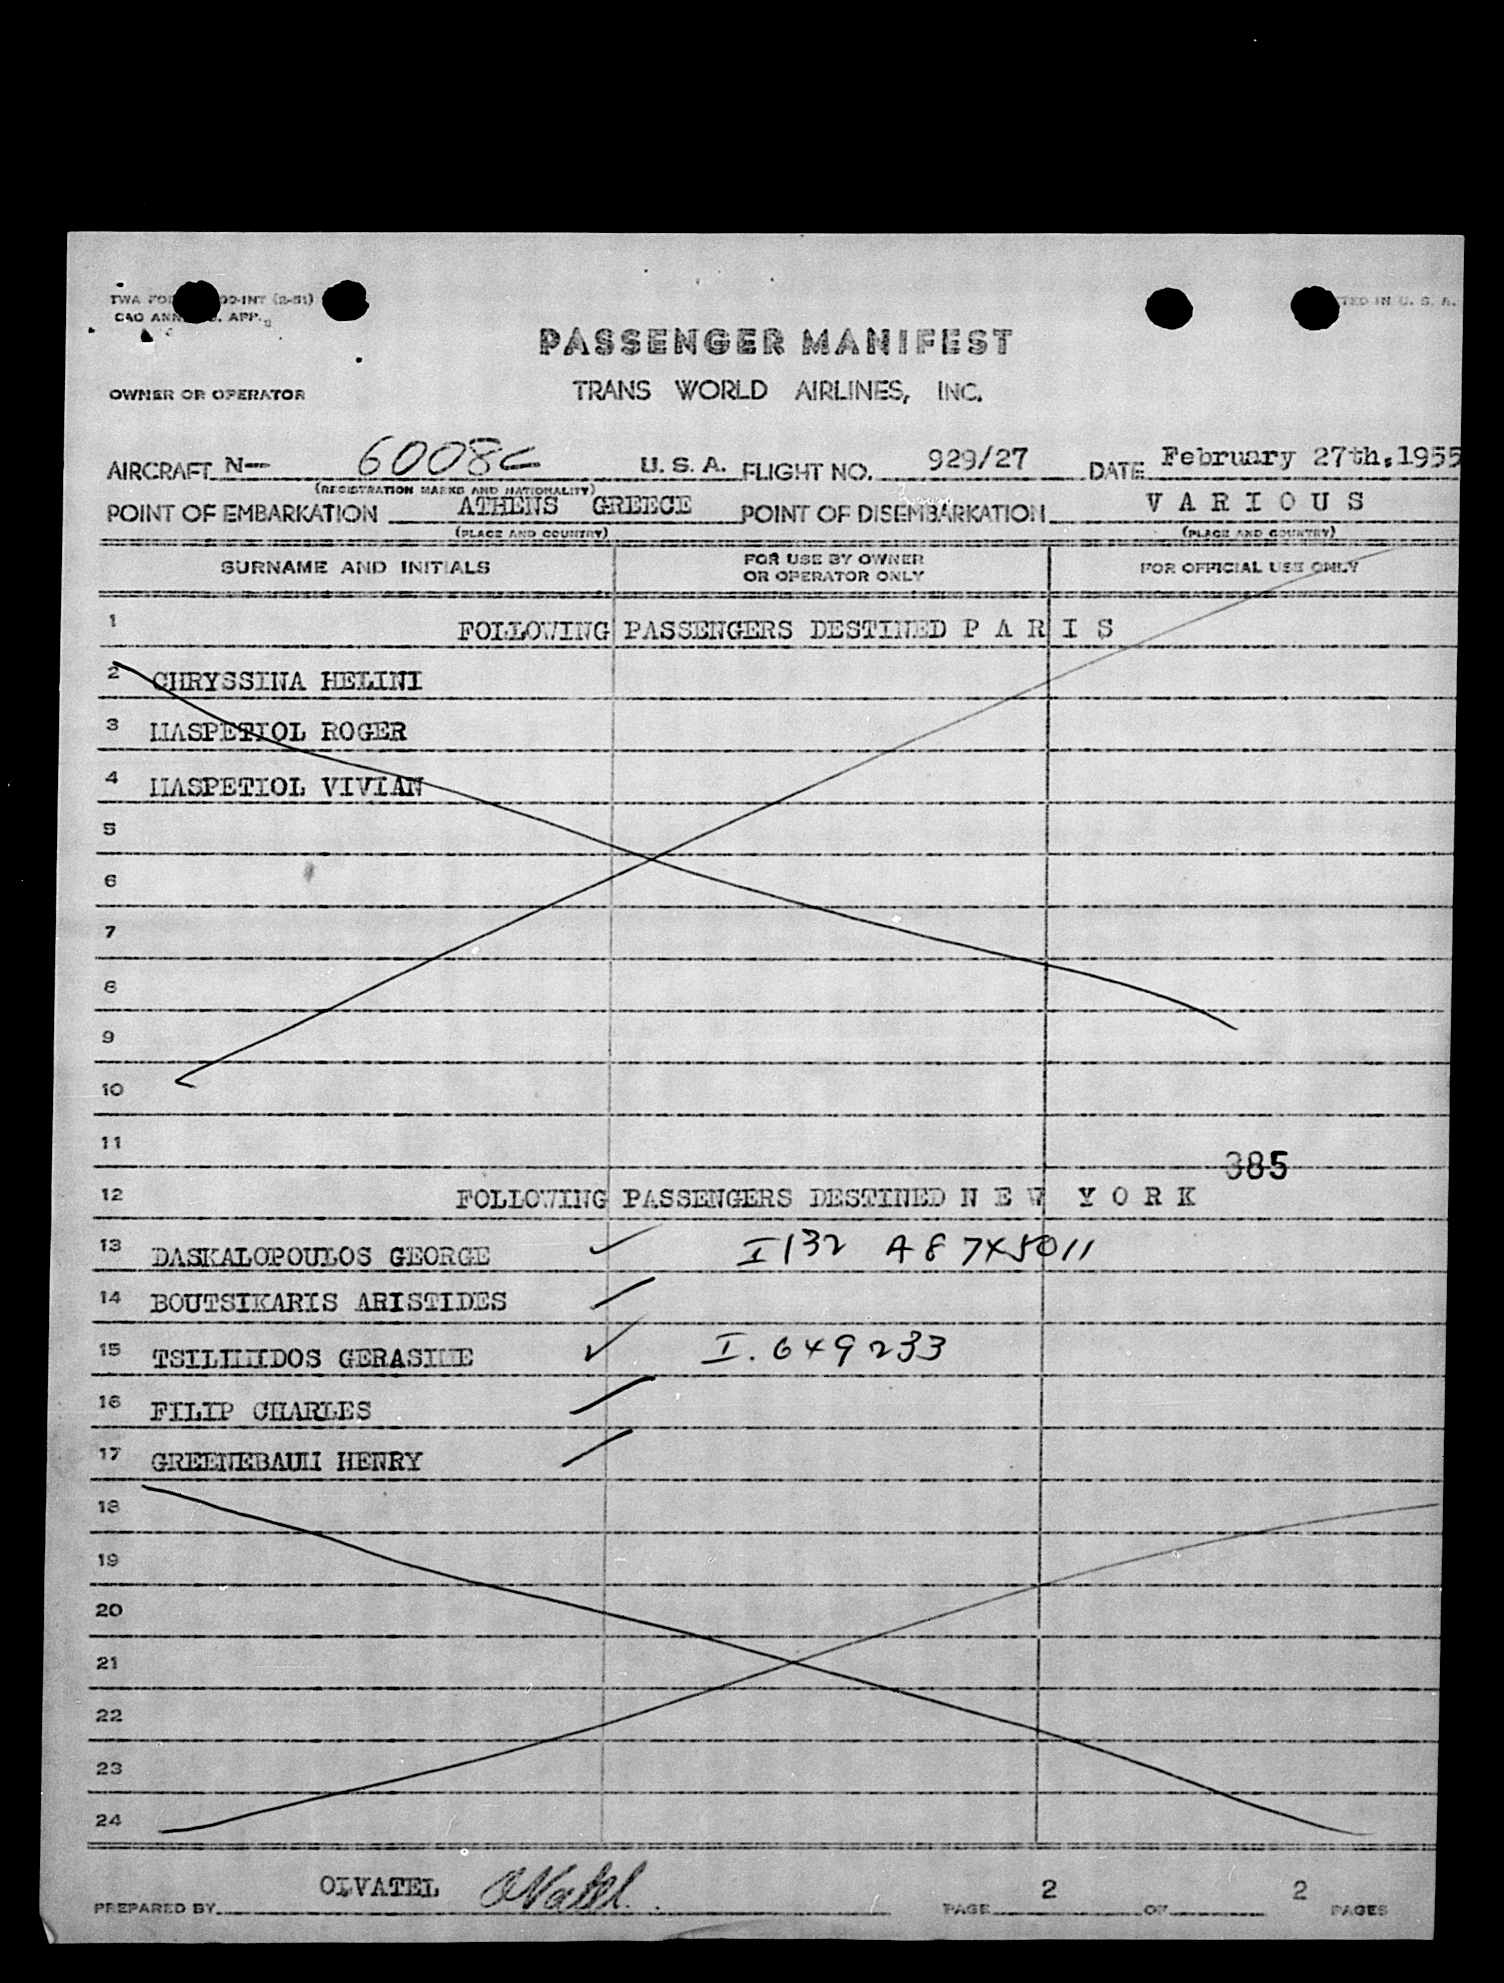 TWA FO 00-INT (2-51)
TED IN U. S. A.
CAO ANN . APP.
PASSENGER MANIFEST
OWNER OR OPERATOR TRANS WORLD AIRLINES, INC.
AIRCRAFT N-- 6008C U. S. A. FLIGHT NO. 929/27 DATE February 27th,1955
(REGISTRATION MARKS AND NATIONALITY)
POINT OF EMBARKATION ATHENS GREECE POINT OF DISEMBARKATION V A R I O U S
(PLACE AND COUNTRY) (PLACE AND COUNTRY)
SURNAME AND INITIALS FOR USE BY OWNER OR OPERATOR ONLY FOR OFFICIAL USE ONLY
1 FOLLOWING PASSENGERS DESTINED P A R I S
2 CHRYSSINA HELINI
3 MASPETIOL ROGER
4 MASPETIOL VIVIAN
5
6
7
8
9
10
11
385
12 FOLLOWING PASSENGERS DESTINED N E W Y O R K
13 DASKALOPOULOS GEORGE I132 A8 7X5011
14 BOUTSIKARIS ARISTIDES
15 TSILIMIDOS GERASIME I. 649233
16 FILIP CHARLES
17 GREENEBAUM HENRY
18
19
20
21
22
23
24
PREPARED BY OLVATEL PAGE 2 OF 2 PAGES